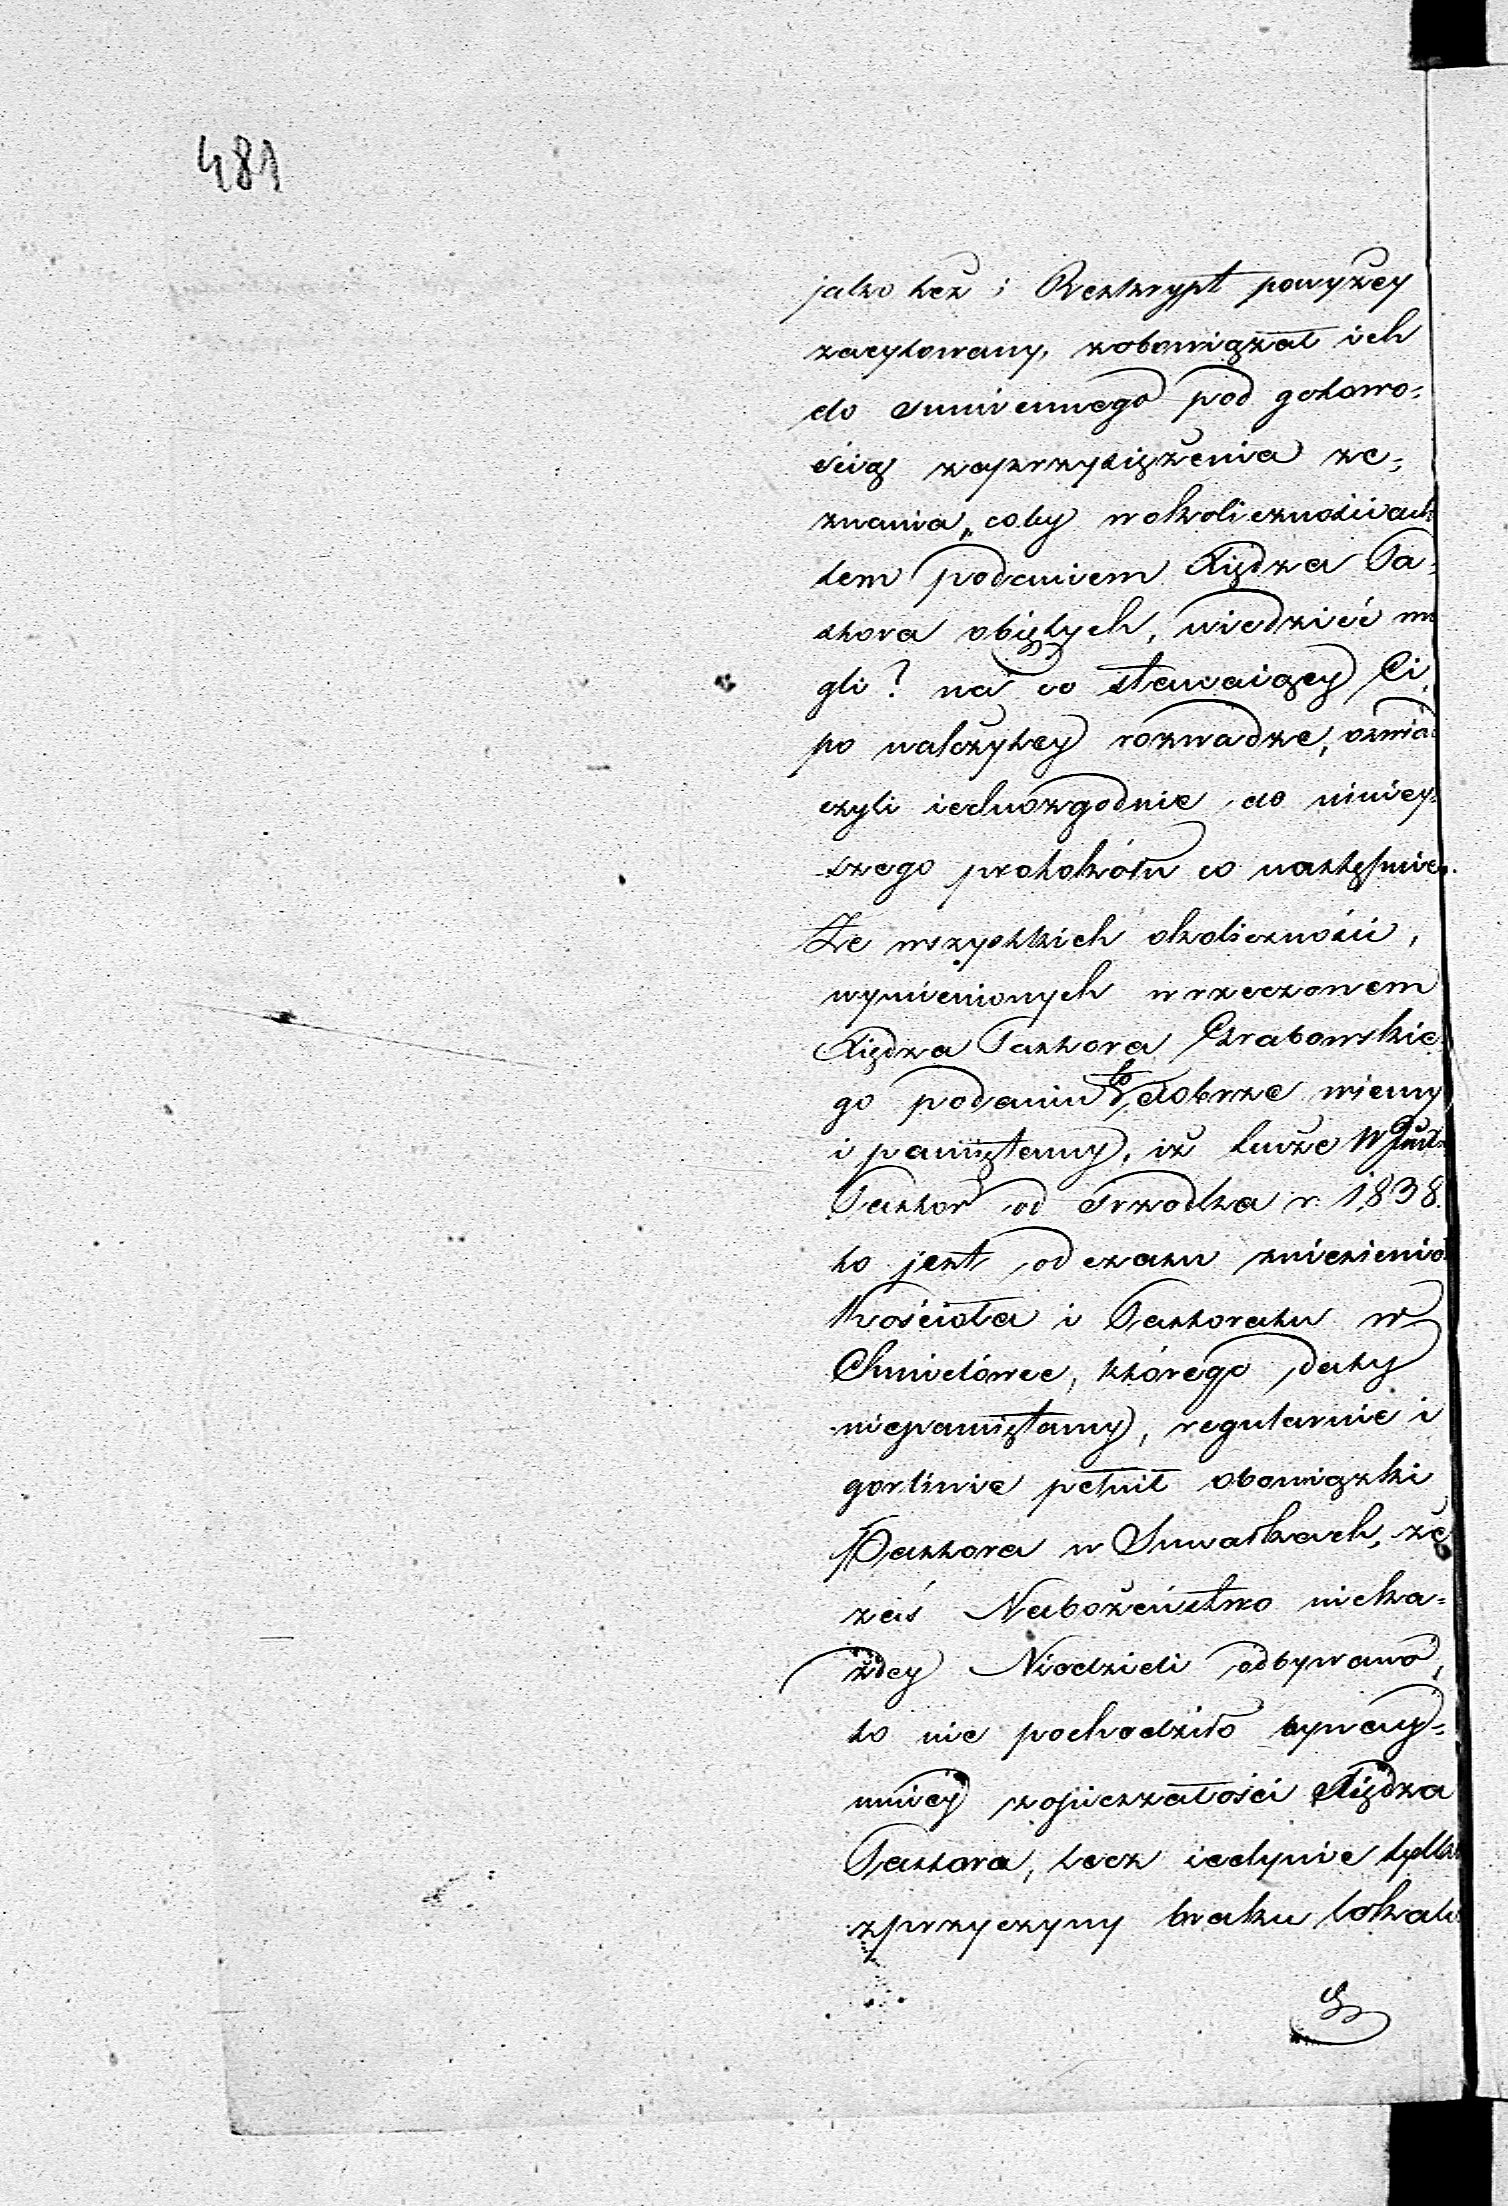 481
jako też i Reskrypt powyżey
zacytowany, zobowiązał ich
do sumiennego pod gotowo-
ścią zaprzysiężenia ze-
znania, coby w okolicznościach
tem podaniem Xiędza Pa-
stora obiętych, wiedzieć mo
gli? na co stawaiący Ci,
po należytey rozwadze, oświad
czyli iednozgodnie do niniey-
szego protokółu co następuie.
Ze wszystkich okoliczności,
wymienionych w rzeczonem
Xiędza Pastora Grabowskie
go podaniu dobrze wiemy
i pamiętamy, iż tenże
Pastor od Srzodka r. 1838.
to jest od czasu zniesienia
Kościoła i Pastoratu w
Chmielówce, którego daty
niepamiętamy, regularnie i
gorliwie pełnił obowiązki
Pastora w Suwałkach, że
zaś Nabożeństwo nieka-
żdey Niedzieli odbywano,
to nie pochodziło bynay-
mniey zopieszałości Xiędza
Pastora, lecz iedynie tylko
zprzyczyny braku lokalu